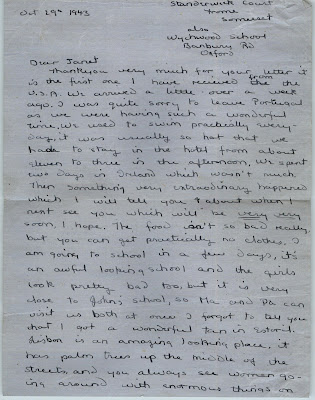 Oct 29th 1943
Standerwick Court
Frome
Somerset
also
Wychwood School
Banbury Rd
Oxford
Dear Janet
Thankyou very much for your letter it
is the first one I have received from the
U.S.A. We arrived a little over a week
ago. I was quite sorry to leave Portugal
as we were having such a wonderful
time, we used to swim practically every-
day, it was usually so hot that we
had to stay in the hotel from about
eleven to three in the afternoon, we spent
two days in Ireland which wasn't much.
Then something very extraordinary happened
which I will tell you about when I
next see you which will be very very
soon, I hope. The food isn't so bad really,
but you can get practically no clothes. I
am going to school in a few days, it's
an awful looking school and the girls
look pretty bad too, but it is very
close to John's school, so Ma and Pa can
visit us both at once. I forgot to tell you
that I got a wonderful tan in Estoril.
Lisbon is an amazing looking place, it
has palm trees up the middle of the
streets, and you always see women go-
ing around with enormous things on